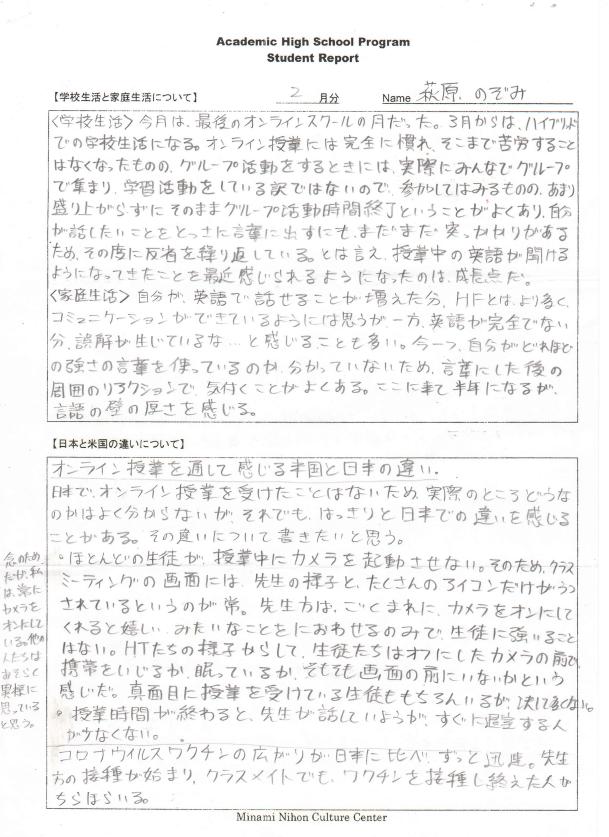 Academic High School Program
Student Report
【学校生活と家庭生活について】 2 月分 Name 萩原 のぞみ
〈学校生活〉今月は、最後のオンラインスクールの月だった。3月からは、ハイブリッド
での学校生活になる。オンライン授業には完全に慣れ、そこまで苦労すること
はなくなったものの、グループ活動をするときには、実際にみんなでグループ
で集まり、学習活動をしている訳ではないので、参加してはみるものの、あまり
盛り上がらずにそのままグループ活動時間終了ということがよくあり、自分
が話したいことをとっさに言葉に出すにも、まだまだ突っかかりがある
ため、その度に反省を繰り返している。とは言え、授業中の英語が聞ける
ようになってきたことを最近感じられるようになったのは、成長点だ。
〈家庭生活〉自分が、英語で話せることが増えた分、HFとは、より多く、
コミュニケーションができているようには思うが、一方、英語が完全でない
分、誤解が生じているな…と感じることも多い。今一つ、自分がどれほど
の強さの言葉を使っているのか、分かっていないため、言葉にした後の
周囲のリアクションで、気付くことがよくある。ここに来て半年になるが、
言語の壁の厚さを感じる。
【日本と米国の違いについて】
オンライン授業を通して感じる米国と日本の違い。
日本で、オンライン授業を受けたことはないため、実際のところどうな
のかはよく分からないが、それでも、はっきりと日本での違いを感じる
ことがある。その違いについて書きたいと思う。
・ほとんどの生徒が、授業中にカメラを起動させない。そのため、クラス
ミーティングの画面には、先生の様子と、たくさんのアイコンだけがうつ
されているというのが常。先生方は、ごくまれに、カメラをオンにして
くれると嬉しい、みたいなことをにおわせるのみで、生徒に強いること
はない。HTたちの様子からして、生徒たちはオフにしたカメラの前で、
携帯をいじるか、眠っているか、そもそも画面の前にいないかという
感じだ。真面目に授業を受けている生徒ももちろんいるが、決して多くない。
・授業時間が終わると、先生が話していようが、すぐに退室する人
が少なくない。
コロナウイルスワクチンの広がりが日本に比べ、ずっと迅速。先生
方の接種が始まり、クラスメイトでも、ワクチンを接種し終えた人が
ちらほらいる。
念のため、
だが、私
は、常に
カメラを
オンにして
いる。他の
人たちは
おそらく
異様に
思っている
と思う。
Minami Nihon Culture Center